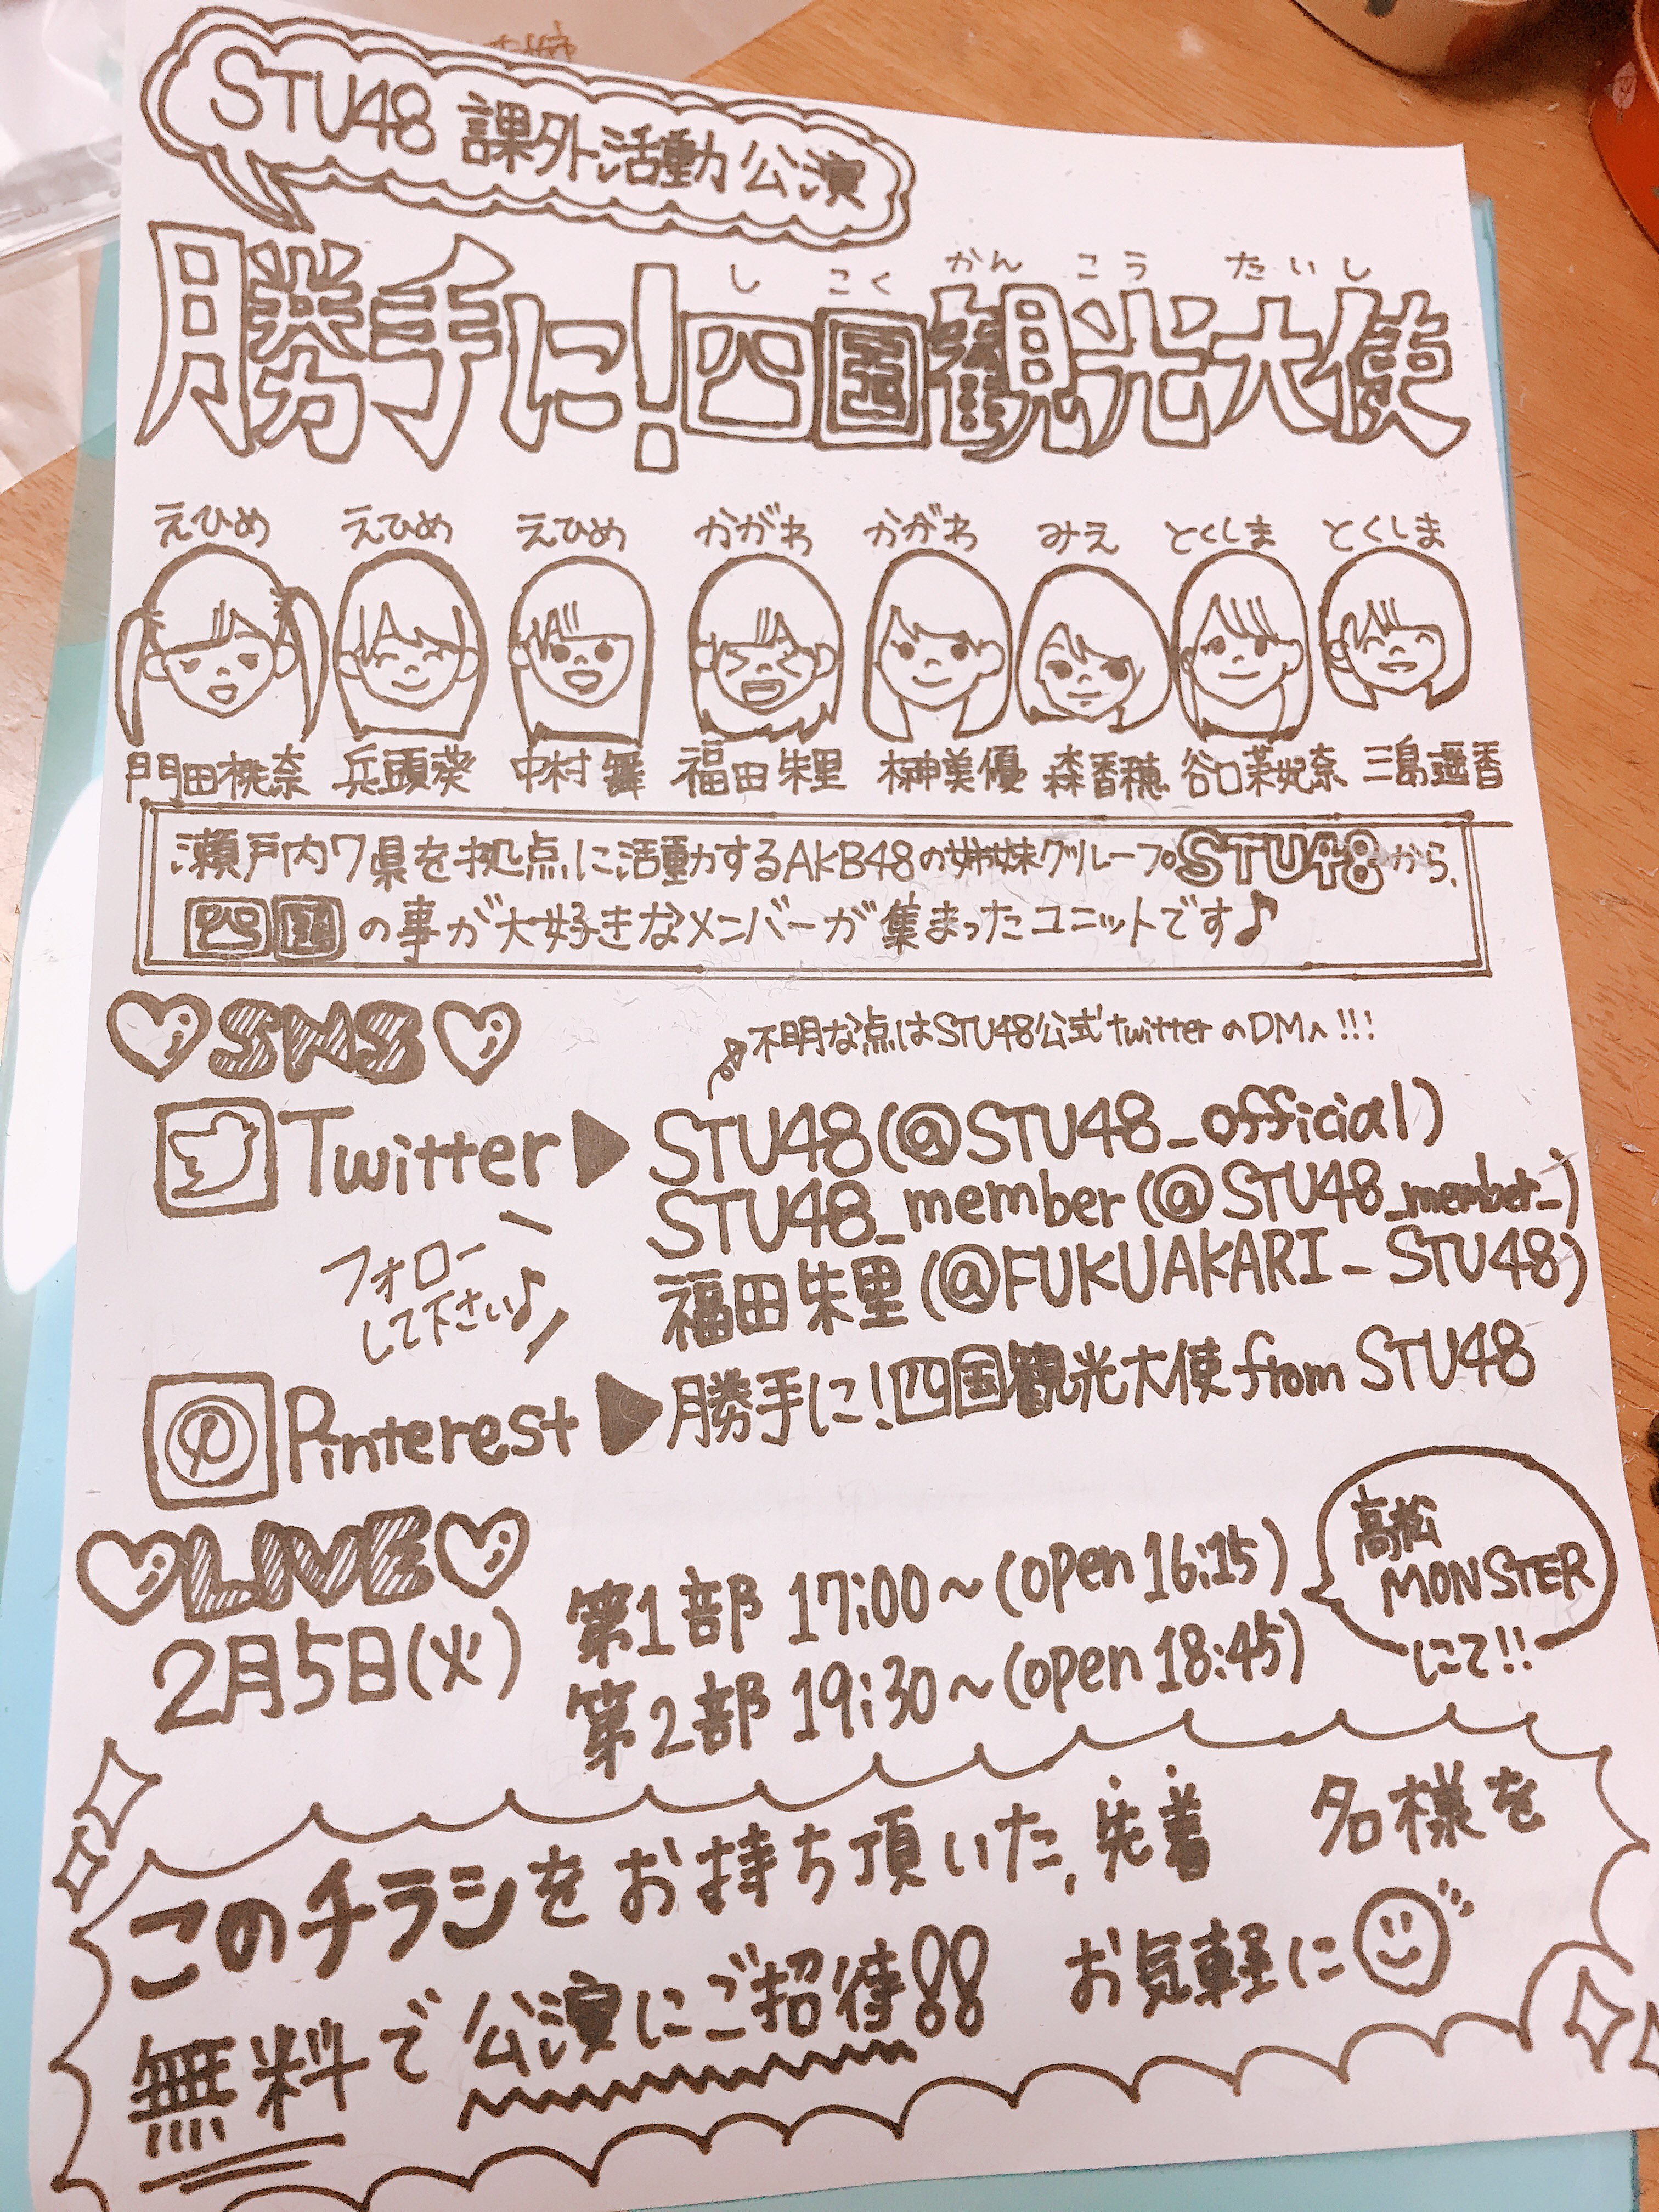 STU48 課外活動 公演
し こく かん こう たいし
勝手に!四国観光大使
えひめ えひめ えひめ かがわ かがわ みえ とくしま とくしま
門田桃奈 兵頭葵 中村舞 福田朱里 榊美優 森香穂 谷口茉妃奈 三島遥香
瀬戸内7県を拠点に活動するAKB48の姉妹グループSTU48から、
四国の事が大好きなメンバーが集まったユニットです♪
♡SNS♡
不明な点はSTU48公式twitterのDMへ!!!
Twitter▶STU48(@STU48_official)
STU48_member(@STU48_member_)
福田朱里(@FUKUAKARI_STU48)
フォロー
して下さい♪
Pinterest▶勝手に!四国観光大使 from STU48
♡LIVE♡
2月5日(火)
第1部 17:00~(open 16:15)
第2部 19:30~(open 18:45)
高松
MONSTER
にて!!
このチラシをお持ち頂いた、先着 名様を
無料で公演にご招待!! お気軽に